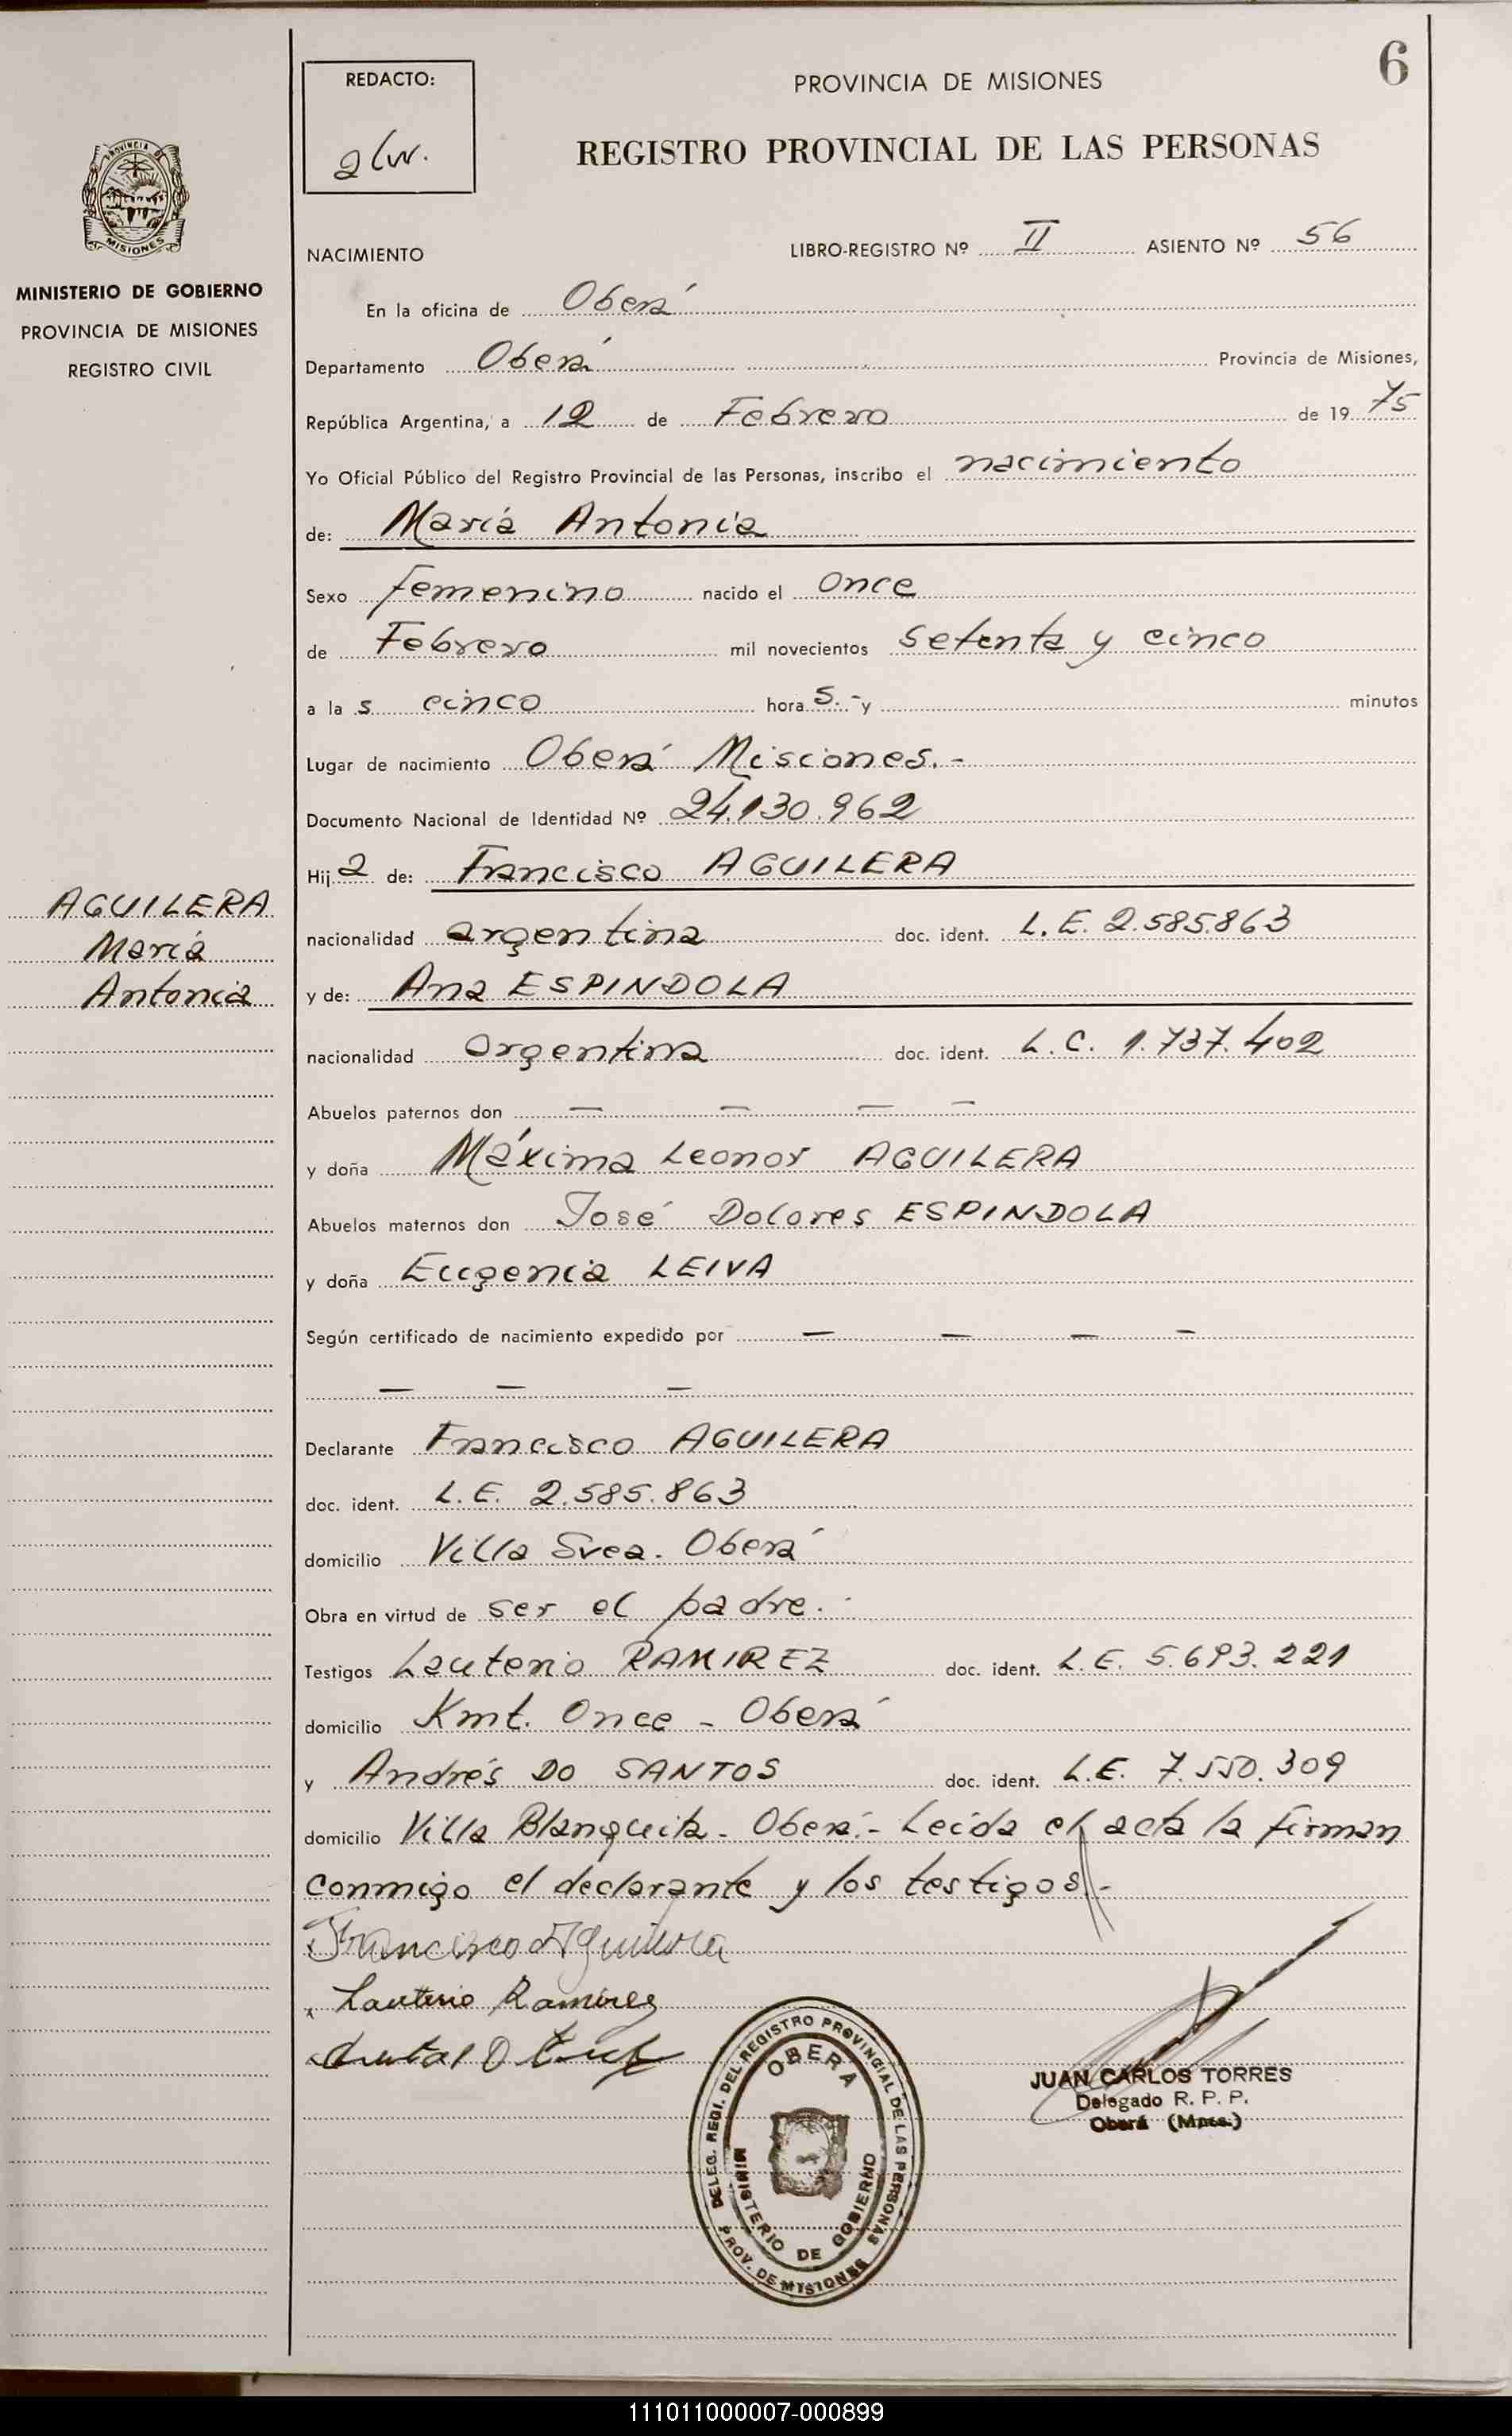 6
REDACTO:
PROVINCIA DE MISIONES
REGISTRO PROVINCIAL DE LAS PERSONAS
PROVINCIA DE
MISIONES
MINISTERIO DE GOBIERNO
PROVINCIA DE MISIONES
REGISTRO CIVIL
NACIMIENTO LIBRO-REGISTRO Nº II ASIENTO Nº 56
En la oficina de Oberá
Departamento Oberá Provincia de Misiones,
República Argentina, a 12 de Febrero de 1975
Yo Oficial Público del Registro Provincial de las Personas, inscribo el nacimiento
de: María Antonia
Sexo femenino nacido el once
de Febrero mil novecientos setenta y cinco
a la s cinco hora s.- y minutos
Lugar de nacimiento Oberá Misiones.-
Documento Nacional de Identidad Nº 24.130.962
Hija de: Francisco AGUILERA
AGUILERA
María
Antonia
nacionalidad argentina doc. ident. L.E. 2.585.863
y de: Ana ESPINDOLA
nacionalidad argentina doc. ident. L.C. 1.737.402
Abuelos paternos don — — — —
y doña Máxima Leonor AGUILERA
Abuelos maternos don José Dolores ESPINDOLA
y doña Eugenia LEIVA
Según certificado de nacimiento expedido por — — — —
— — —
Declarante Francisco AGUILERA
doc. ident. L.E. 2.585.863
domicilio Villa Svea. Oberá
Obra en virtud de ser el padre.-
Testigos Lauterio RAMIREZ doc. ident. L.E. 5.693.221
domicilio Kmt. Once - Oberá
y Andrés DO SANTOS doc. ident. L.E. 7.550.309
domicilio Villa Blanquita - Oberá.- Leída el acta la firman
conmigo el declarante y los testigos.-
Francisco Aguilera
Lauterio Ramirez
DELEG. REGI. DEL REGISTRO PROVINCIAL DE LAS PERSONAS
PROV. DE MISIONES
OBERA
MINISTERIO DE GOBIERNO
JUAN CARLOS TORRES
Delegado R. P. P.
Oberá (Mnes.)
111011000007-000899